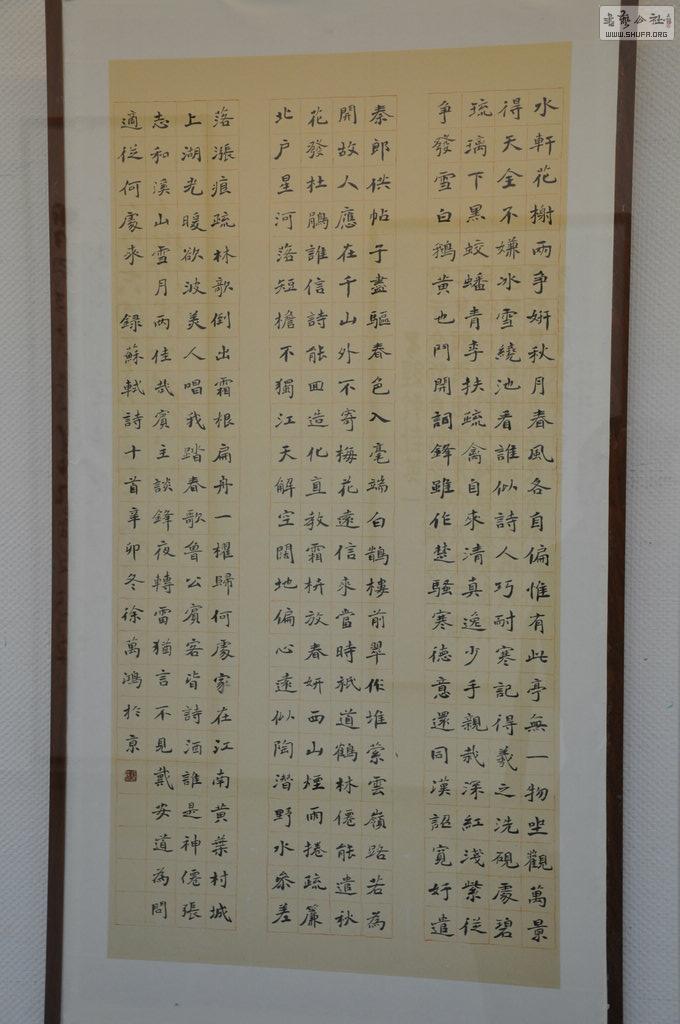 水軒花榭兩爭妍秋月春風各自偏惟有此亭無一物坐觀萬景
得天全不嫌冰雪繞池看誰似詩人巧耐寒記得羲之洗硯處碧
琉璃下黑蛟蟠青李扶疏禽自來清真逸少手親栽深紅淺紫從
爭發雪白鵝黃也鬥開詞鋒雖作楚騷寒德意還同漢詔寬好遣
秦郎供帖子盡驅春色入毫端白鵲樓前翠作堆縈雲嶺路若為
開故人應在千山外不寄梅花遠信來當時祇道鶴林僊能遣秋
花發杜鵑誰信詩能回造化直教霜枿放春妍西山煙雨捲疏簾
北戶星河落短檐不獨江天解空闊地偏心遠似陶潛野水參差
落漲痕疏林歌倒出霜根扁舟一櫂歸何處家在江南黃葉村城
上湖光暖欲波美人唱我踏春歌魯公賓客皆詩酒誰是神僊張
志和溪山雪月兩佳哉賓主談鋒夜轉雷猶言不見戴安道為問
適從何處來 錄蘇軾詩十首辛卯冬徐萬鴻於京
書藝公社
WWW.SHUFA.ORG